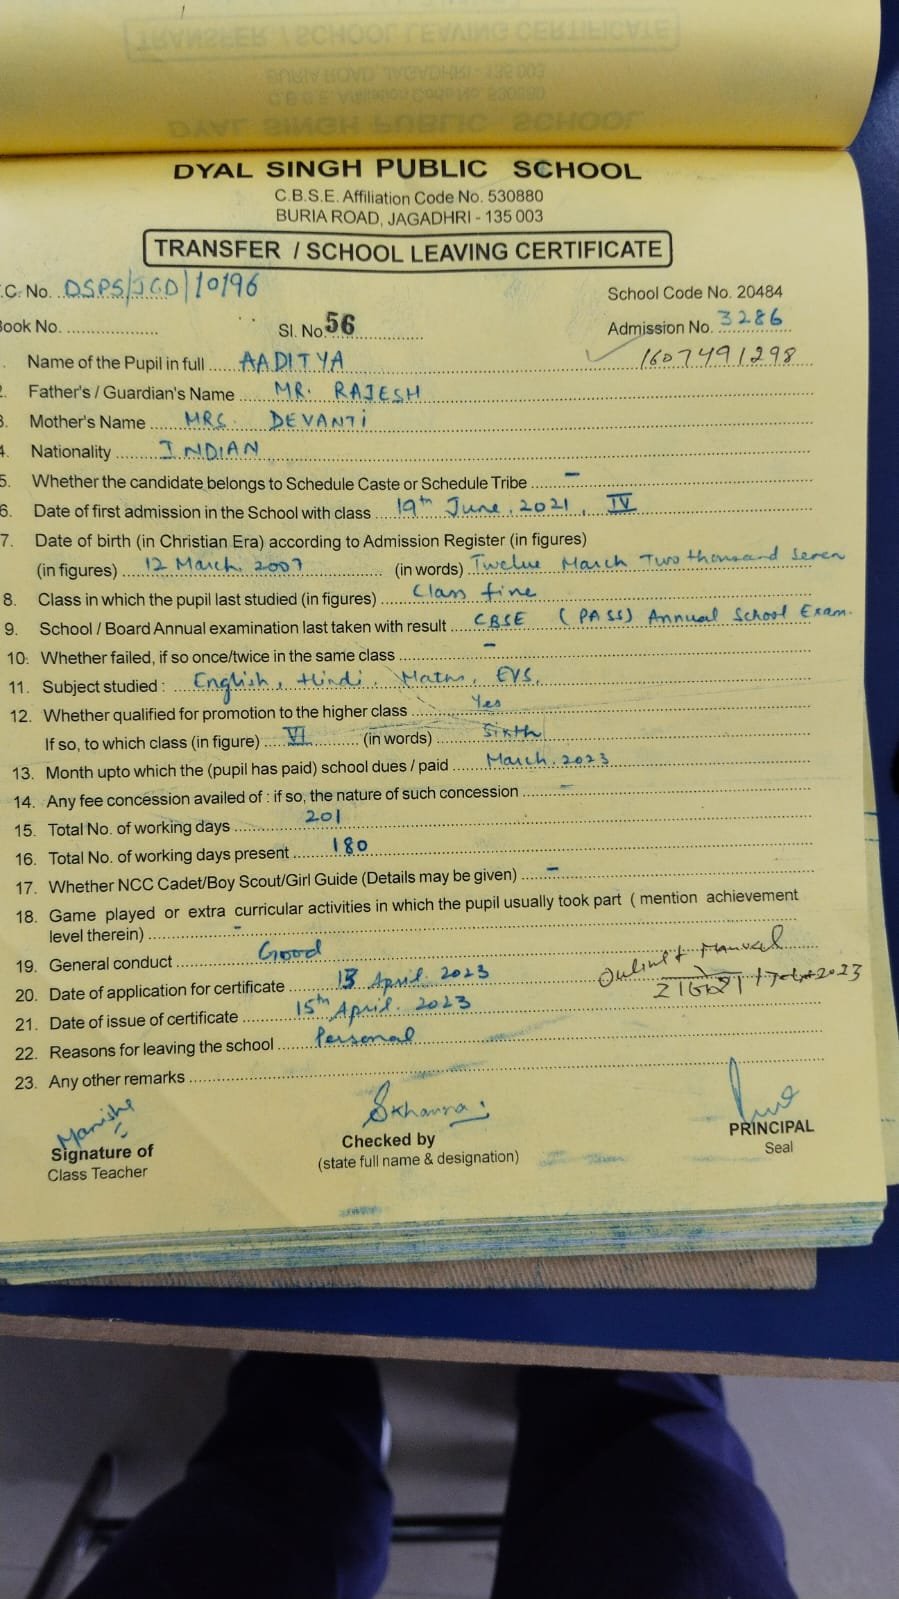 DYAL SINGH PUBLIC SCHOOL
C.B.S.E. Affiliation Code No. 530880
BURIA ROAD, JAGADHRI - 135 003
TRANSFER / SCHOOL LEAVING CERTIFICATE
.C. No. DSPS/JGD/10196
School Code No. 20484
Book No. Sl. No 56 Admission No. 3286
Name of the Pupil in full AADITYA 1607491298
Father's / Guardian's Name MR. RAJESH
Mother's Name MRS. DEVANTI
4. Nationality INDIAN
5. Whether the candidate belongs to Schedule Caste or Schedule Tribe -
6. Date of first admission in the School with class 19th June, 2021, IV
7. Date of birth (in Christian Era) according to Admission Register (in figures)
(in figures) 12 March 2007 (in words) Twelve March Two thousand Seven
8. Class in which the pupil last studied (in figures) Class five
9. School / Board Annual examination last taken with result CBSE (PASS) Annual School Exam.
10. Whether failed, if so once/twice in the same class -
11. Subject studied : English, Hindi, Maths, EVS,
12. Whether qualified for promotion to the higher class Yes
If so, to which class (in figure) VI (in words) Sixth
13. Month upto which the (pupil has paid) school dues / paid March. 2023
14. Any fee concession availed of : if so, the nature of such concession -
15. Total No. of working days 201
16. Total No. of working days present 180
17. Whether NCC Cadet/Boy Scout/Girl Guide (Details may be given) -
18. Game played or extra curricular activities in which the pupil usually took part ( mention achievement
level therein) -
19. General conduct Good
20. Date of application for certificate 13 April. 2023
21. Date of issue of certificate 15th April. 2023
22. Reasons for leaving the school Personal
23. Any other remarks
Manisha
Skhanna
Signature of
Class Teacher
Checked by
(state full name & designation)
PRINCIPAL
Seal